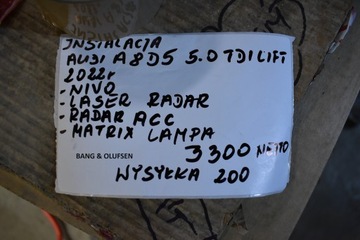 INSTALACJA
AUDI A8D5 5.0 TDI LIFT
2022r
- NIVO
- LASER RADAR
- RADAR ACC
- MATRIX LAMPA
BANG & OLUFSEN
3300 NETTO
WYSYŁKA 200